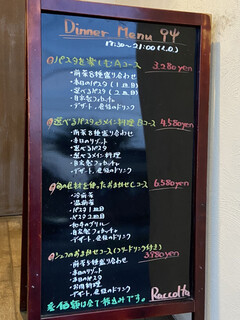 Dinner Menu
17:30~21:00 (L.O.)
パスタを楽しむAコース 3.280yen
・前菜8種盛り合わせ
・本日のパスタ(1皿目)
・選べるパスタ(2皿目)
・自家製フォカッチャ
・デザート、食後のドリンク
選べるパスタとメイン料理Bコース 4.580yen
・前菜8種盛り合わせ
・本日のリゾット
・選べるパスタ
・選べるメイン料理
・自家製フォカッチャ
・デザート、食後のドリンク
旬の食材を使ったおまかせCコース 6.580yen
・冷前菜
・温前菜
・パスタ1皿目
・パスタ2皿目
・和牛のグリル
・デザート、食後のドリンク
シェフのおまかせコース(フリードリンク付き)
・前菜8種盛り合わせ
・本日のリゾット
・本日のパスタ
・お肉料理
・デザート、食後のドリンク
価格は全て税込みです。 Raccolta